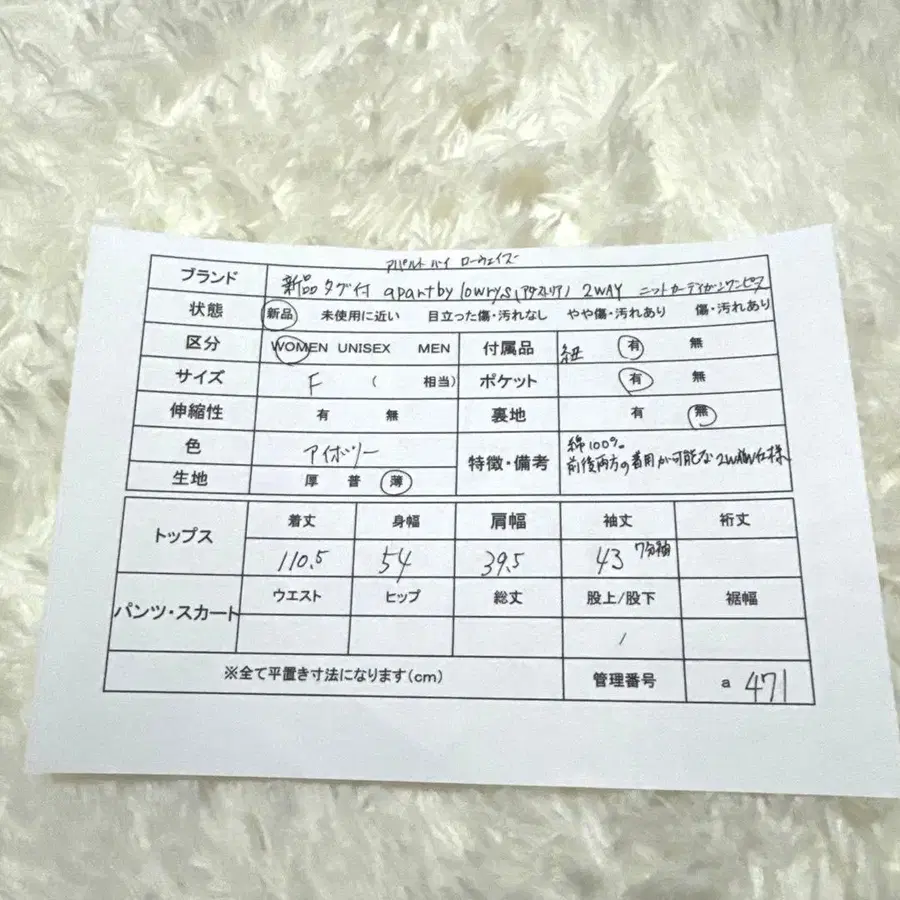 アパルト バイ ローウェイズ
ブランド 新品タグ付 apart by lowrys (アダストリア) 2WAY ニットカーディガンワンピース
状態 新品 未使用に近い 目立った傷・汚れなし やや傷・汚れあり 傷・汚れあり
区分 WOMEN UNISEX MEN 付属品 紐 有 無
サイズ F ( 相当) ポケット 有 無
伸縮性 有 無 裏地 有 無
色 アイボリー 特徴・備考 綿100%
前後両方の着用が可能な2WAY仕様
生地 厚 普 薄
トップス 着丈 身幅 肩幅 袖丈 裄丈
110.5 54 39.5 43 7分袖
パンツ・スカート ウエスト ヒップ 総丈 股上/股下 裾幅
/
※全て平置き寸法になります(cm) 管理番号 a 471